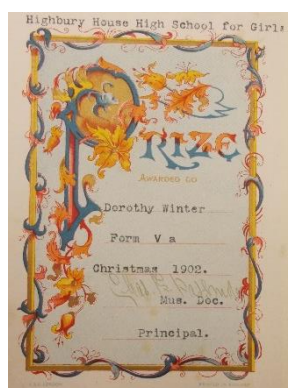 Highbury House High School for Girls
PRIZE
AWARDED TO
Dorothy Winter
Form V a
Christmas 1902.
Mus. Doc.
Principal.